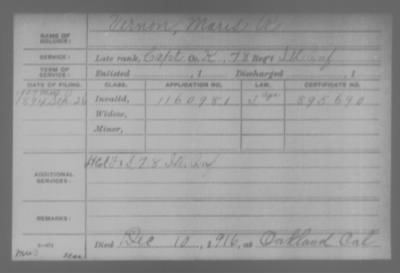 Vernon, Maris R
NAME OF SOLDIER:
SERVICE: Late rank, Capt Co. K, 78 Reg't Ill Inf
TERM OF SERVICE: Enlisted , 1 Discharged , 1
DATE OF FILING. CLASS. APPLICATION NO. LAW. CERTIFICATE NO.
1894 Sep. 26 Invalid, 1160981 895690
Widow,
Minor,
ADDITIONAL SERVICES: F & S 78 Ill Inf
REMARKS:
Died Dec 10, 1916, at Oakland Cal